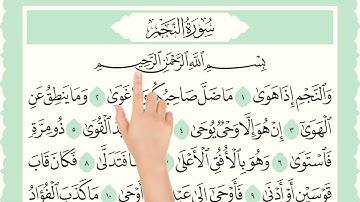 سُورَةُ النَّجْمِ
بِسْمِ اللَّهِ الرَّحْمَٰنِ الرَّحِيمِ
وَالنَّجْمِ إِذَا هَوَىٰ ١ مَا ضَلَّ غَوَىٰ ٢ وَمَا يَنطِقُ عَنِ
الْهَوَىٰ ٣ إِنْ هُوَ إِلَّا وَحْيٌ يُوحَىٰ ٤ الْقُوَىٰ ٥ ذُو مِرَّةٍ
فَاسْتَوَىٰ ٦ وَهُوَ بِالْأُفُقِ الْأَعْلَىٰ فَتَدَلَّىٰ ٨ فَكَانَ قَابَ
قَوْسَيْنِ أَوْ أَدْنَىٰ ٩ فَأَوْحَىٰ إِلَىٰ أَوْحَىٰ ١٠ مَا كَذَبَ الْفُؤَادُ